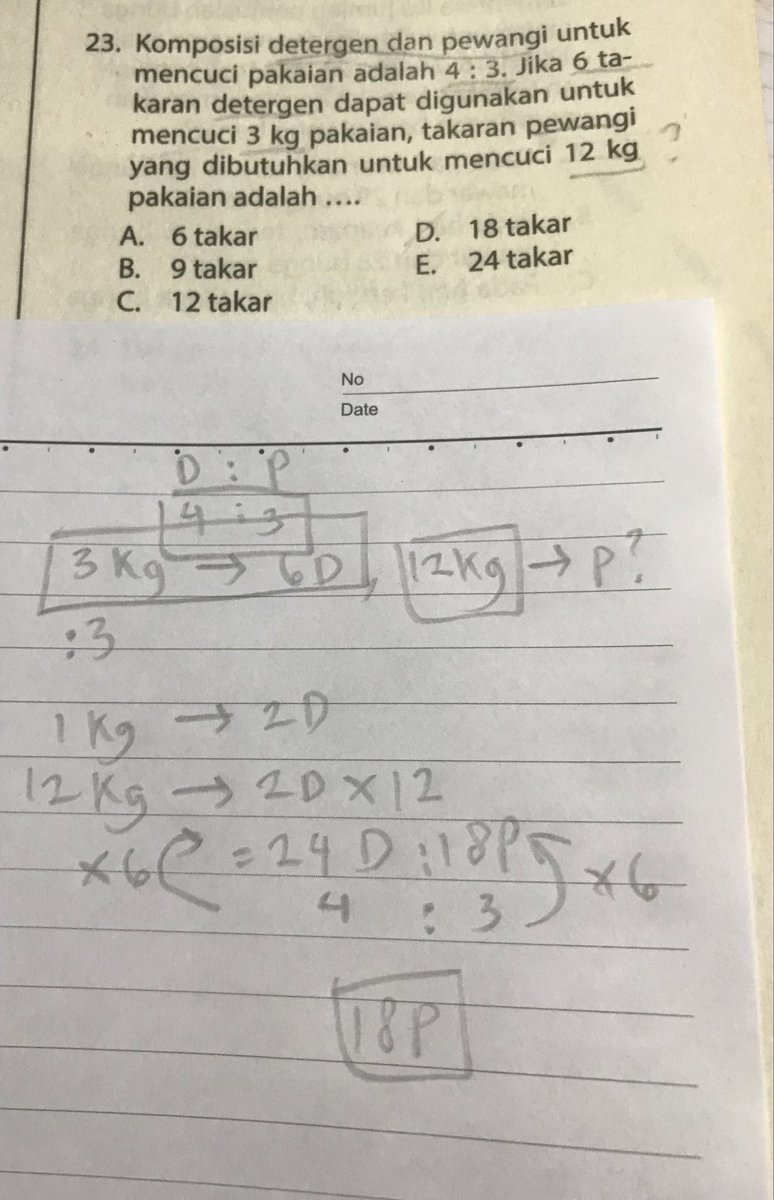 23. Komposisi detergen dan pewangi untuk
mencuci pakaian adalah 4 : 3. Jika 6 ta-
karan detergen dapat digunakan untuk
mencuci 3 kg pakaian, takaran pewangi
yang dibutuhkan untuk mencuci 12 kg ?
pakaian adalah ....
A. 6 takar
B. 9 takar
C. 12 takar
D. 18 takar
E. 24 takar
No
Date
D : P
4 : 3
3 Kg → 6D, 12Kg → P?
:3
1 Kg → 2D
12 Kg → 2D × 12
×6 = 24 D : 18P ×6
4 : 3
18P